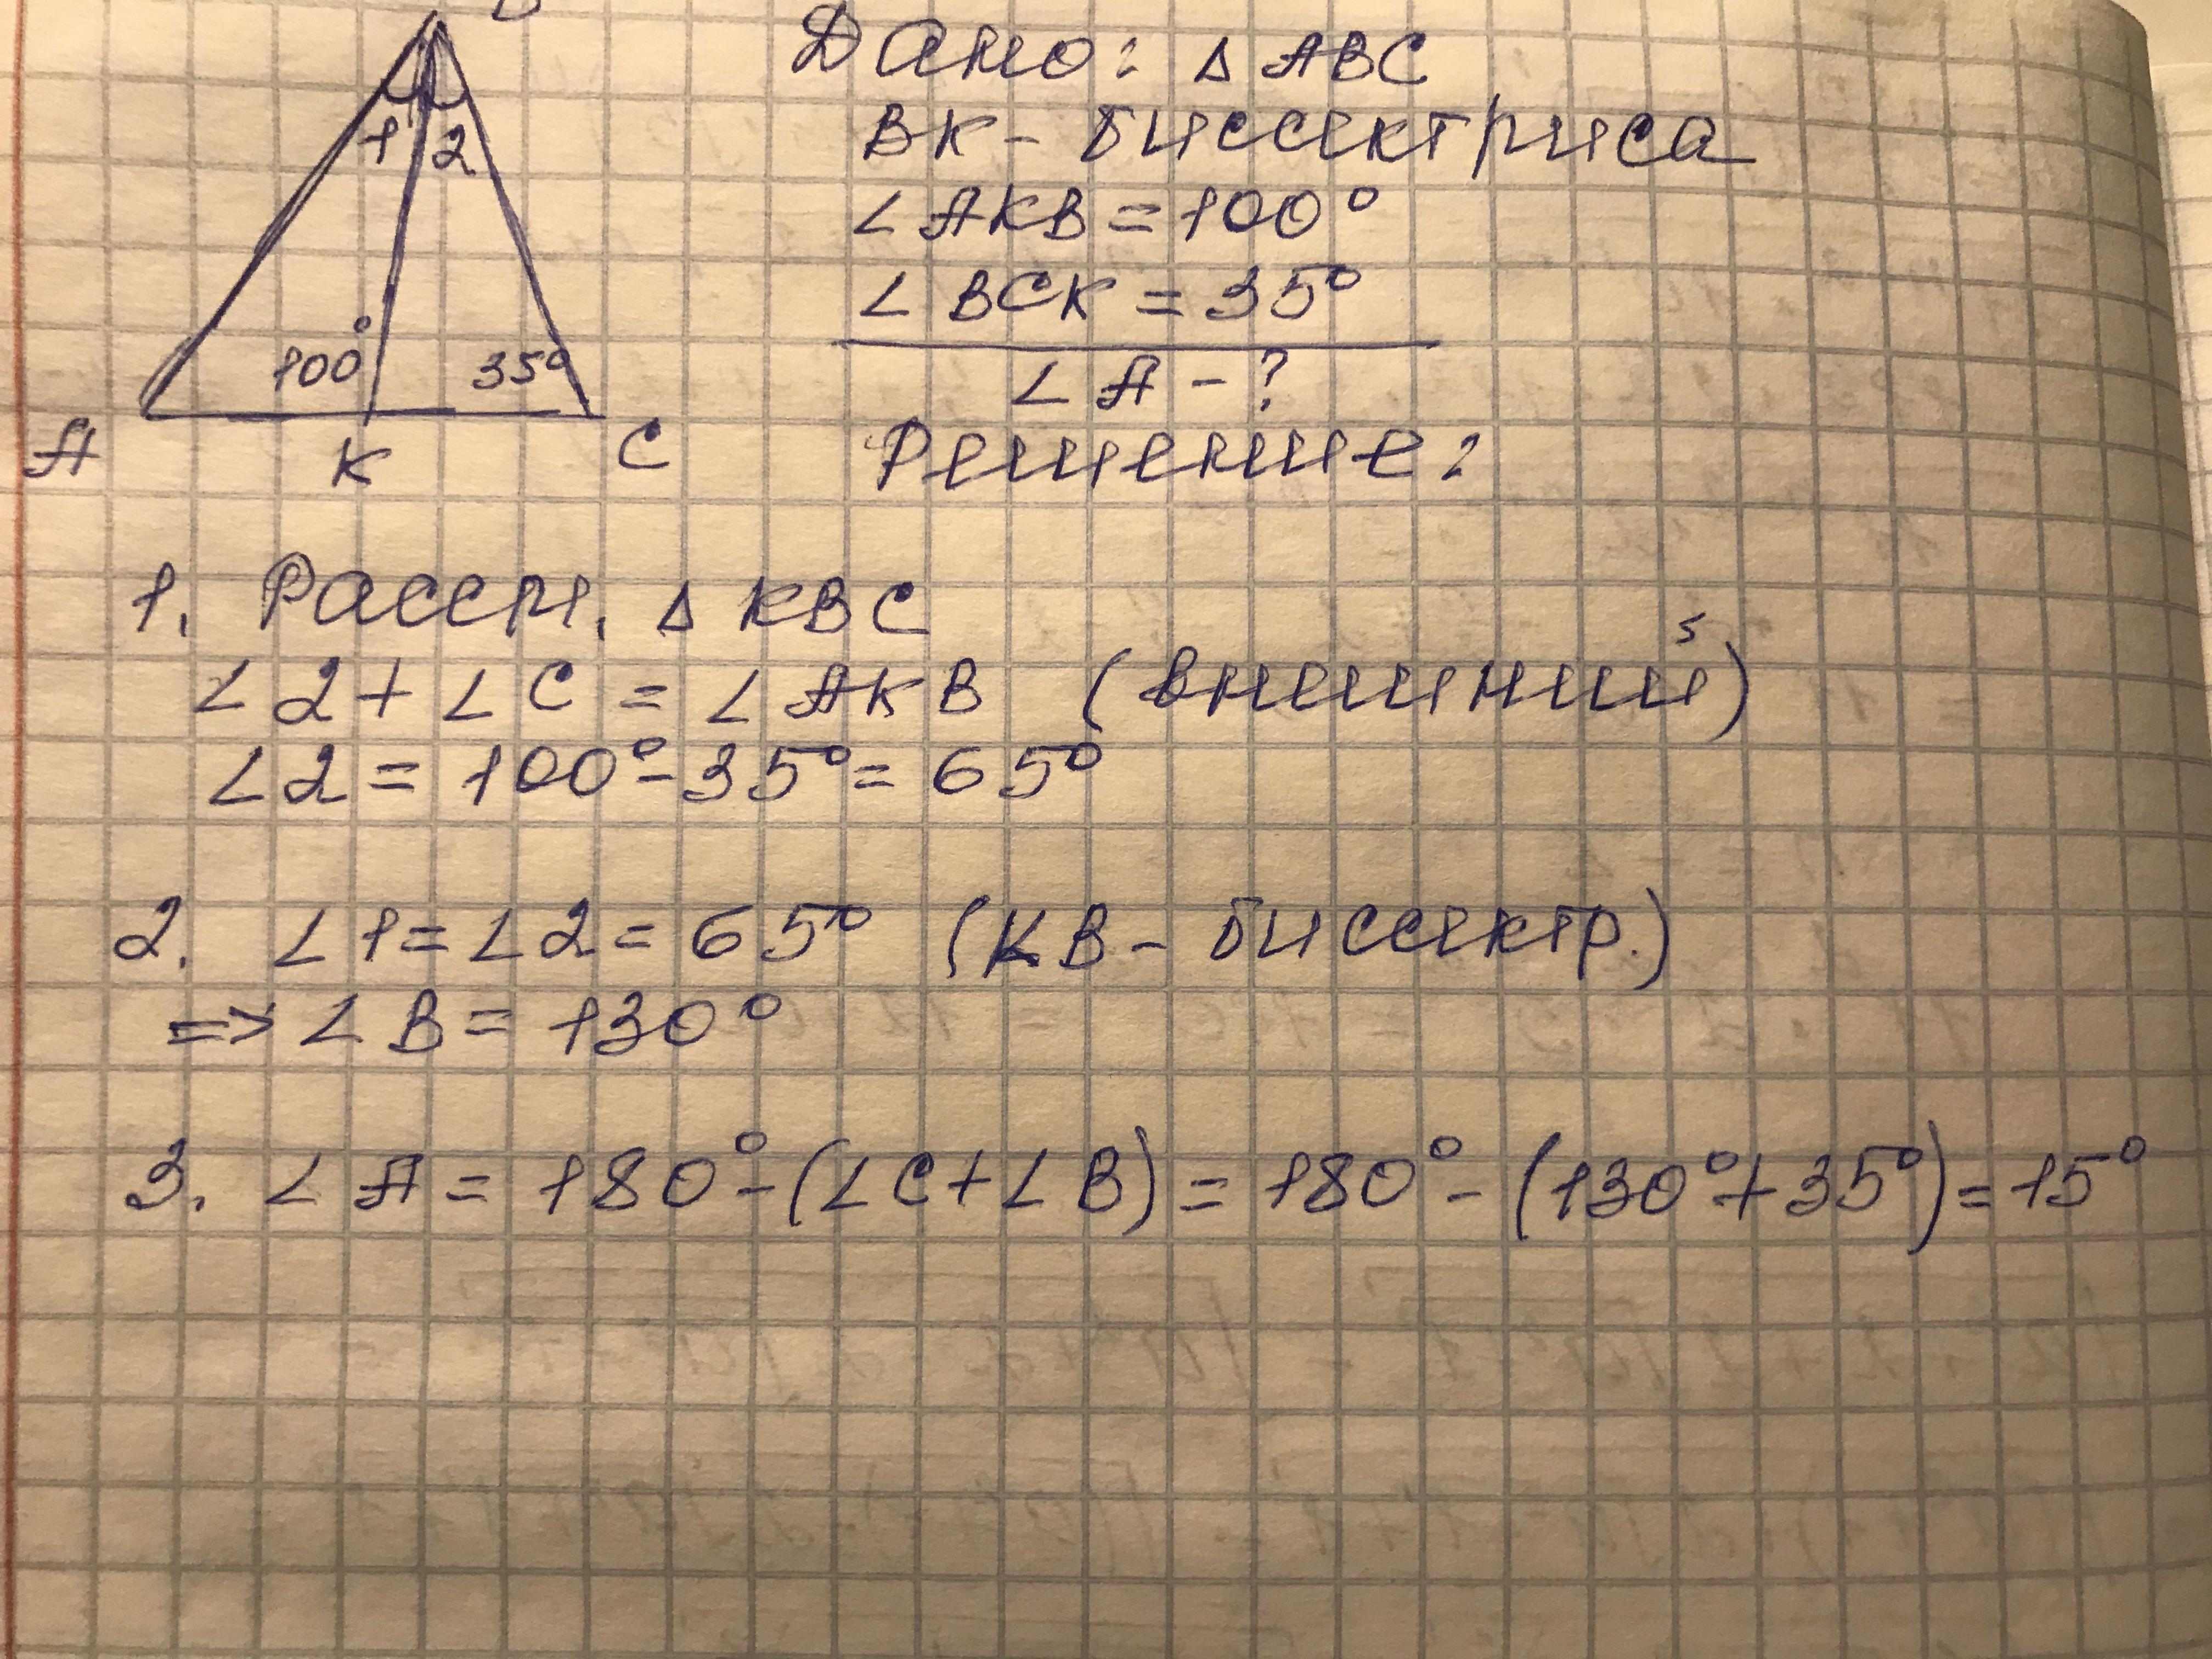 B
1 2
100° 35°
A K C
Дано: Δ ABC
BK - биссектриса
∠ AKB = 100°
∠ BCK = 35°
∠ A - ?
Решение:
1. Рассм. Δ KBC
∠ 2 + ∠ C = ∠ AKB (внешний)
∠ 2 = 100° - 35° = 65°
2. ∠ 1 = ∠ 2 = 65° (KB - биссектр.)
=> ∠ B = 130°
3. ∠ A = 180° - (∠ C + ∠ B) = 180° - (130° + 35°) = 15°